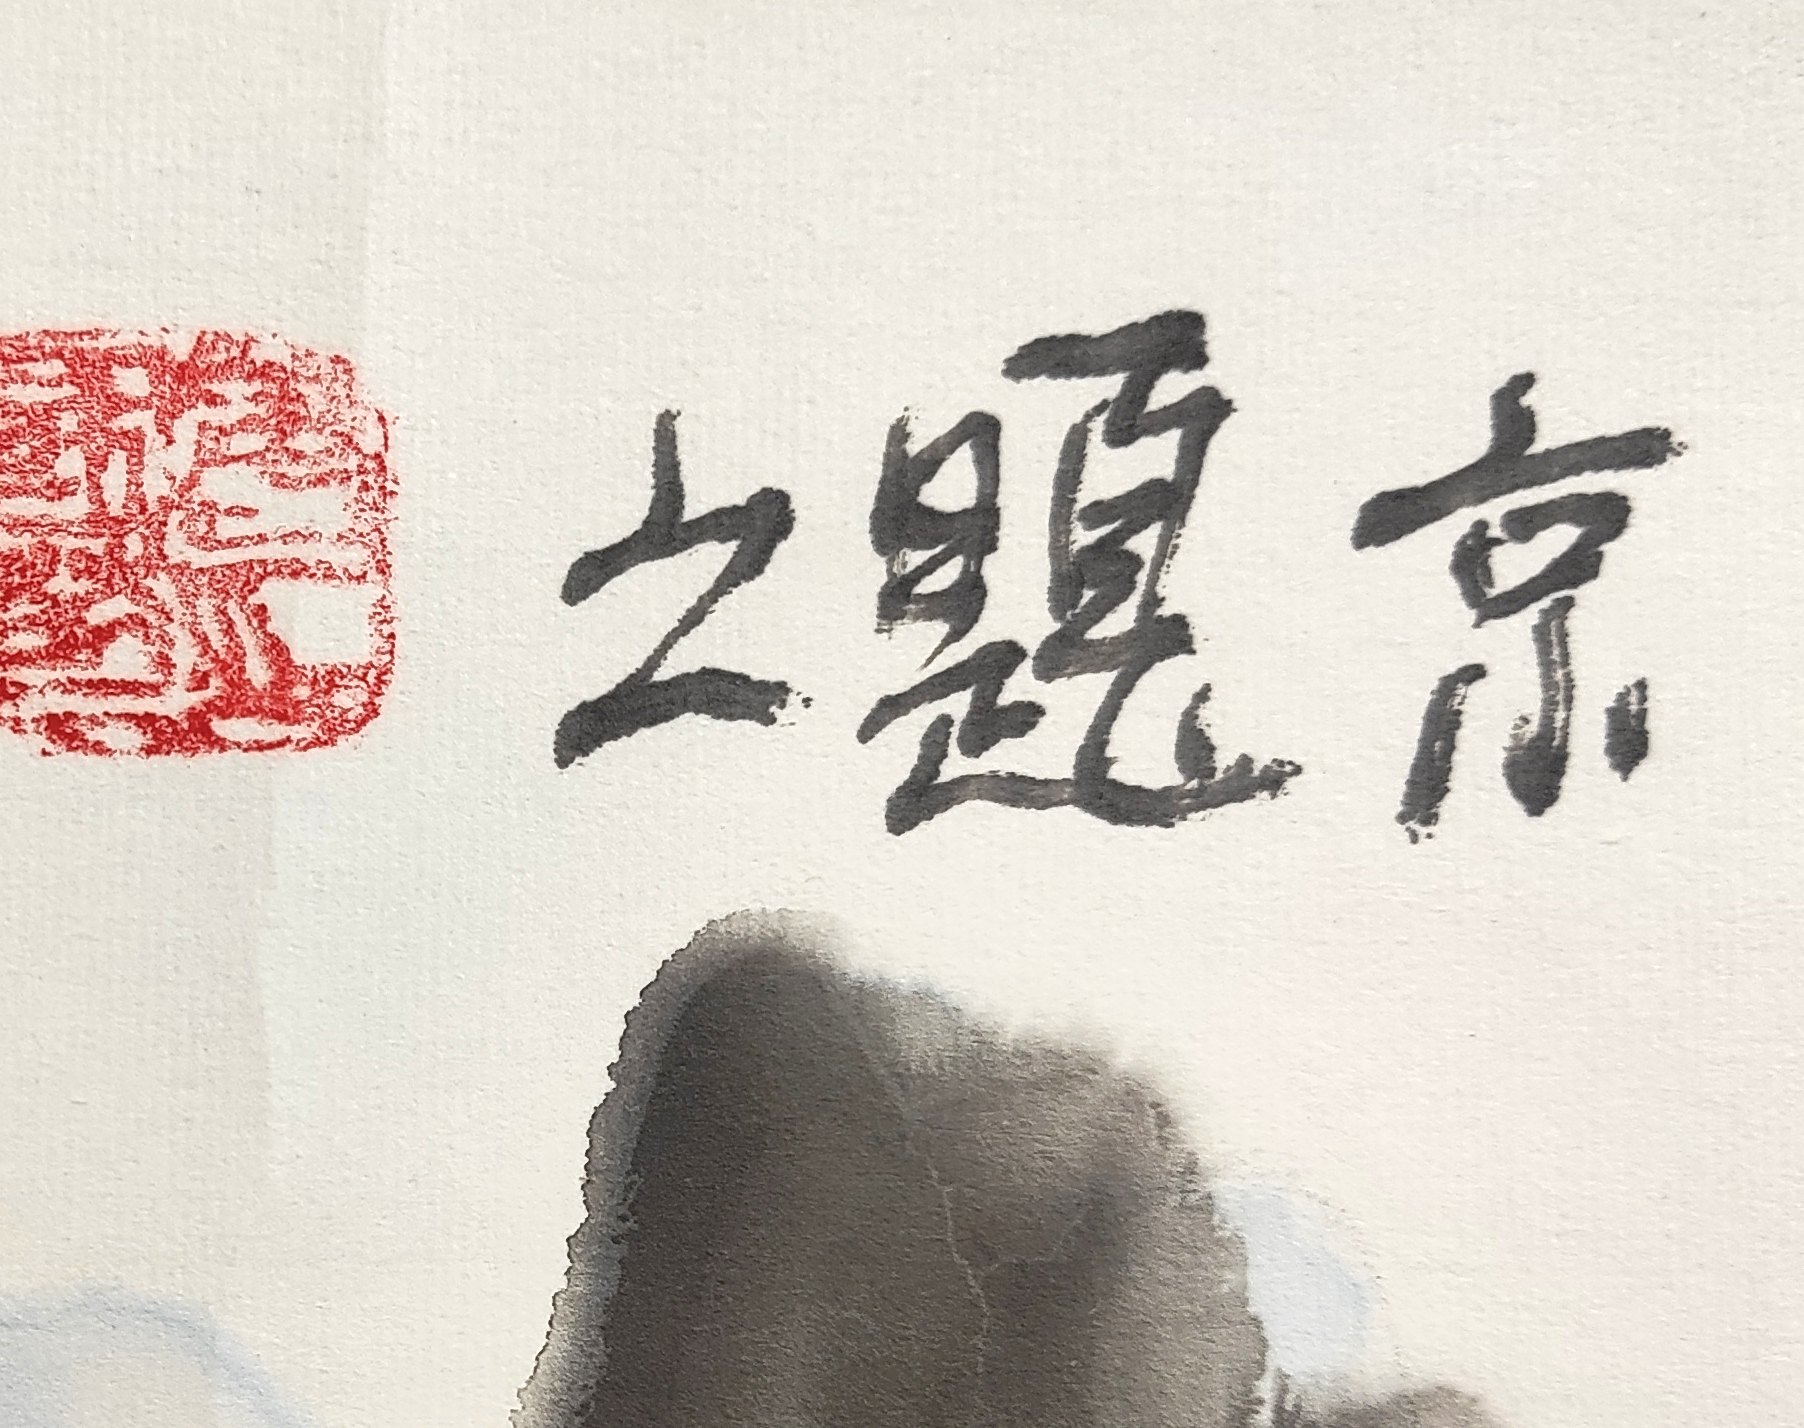 京題之